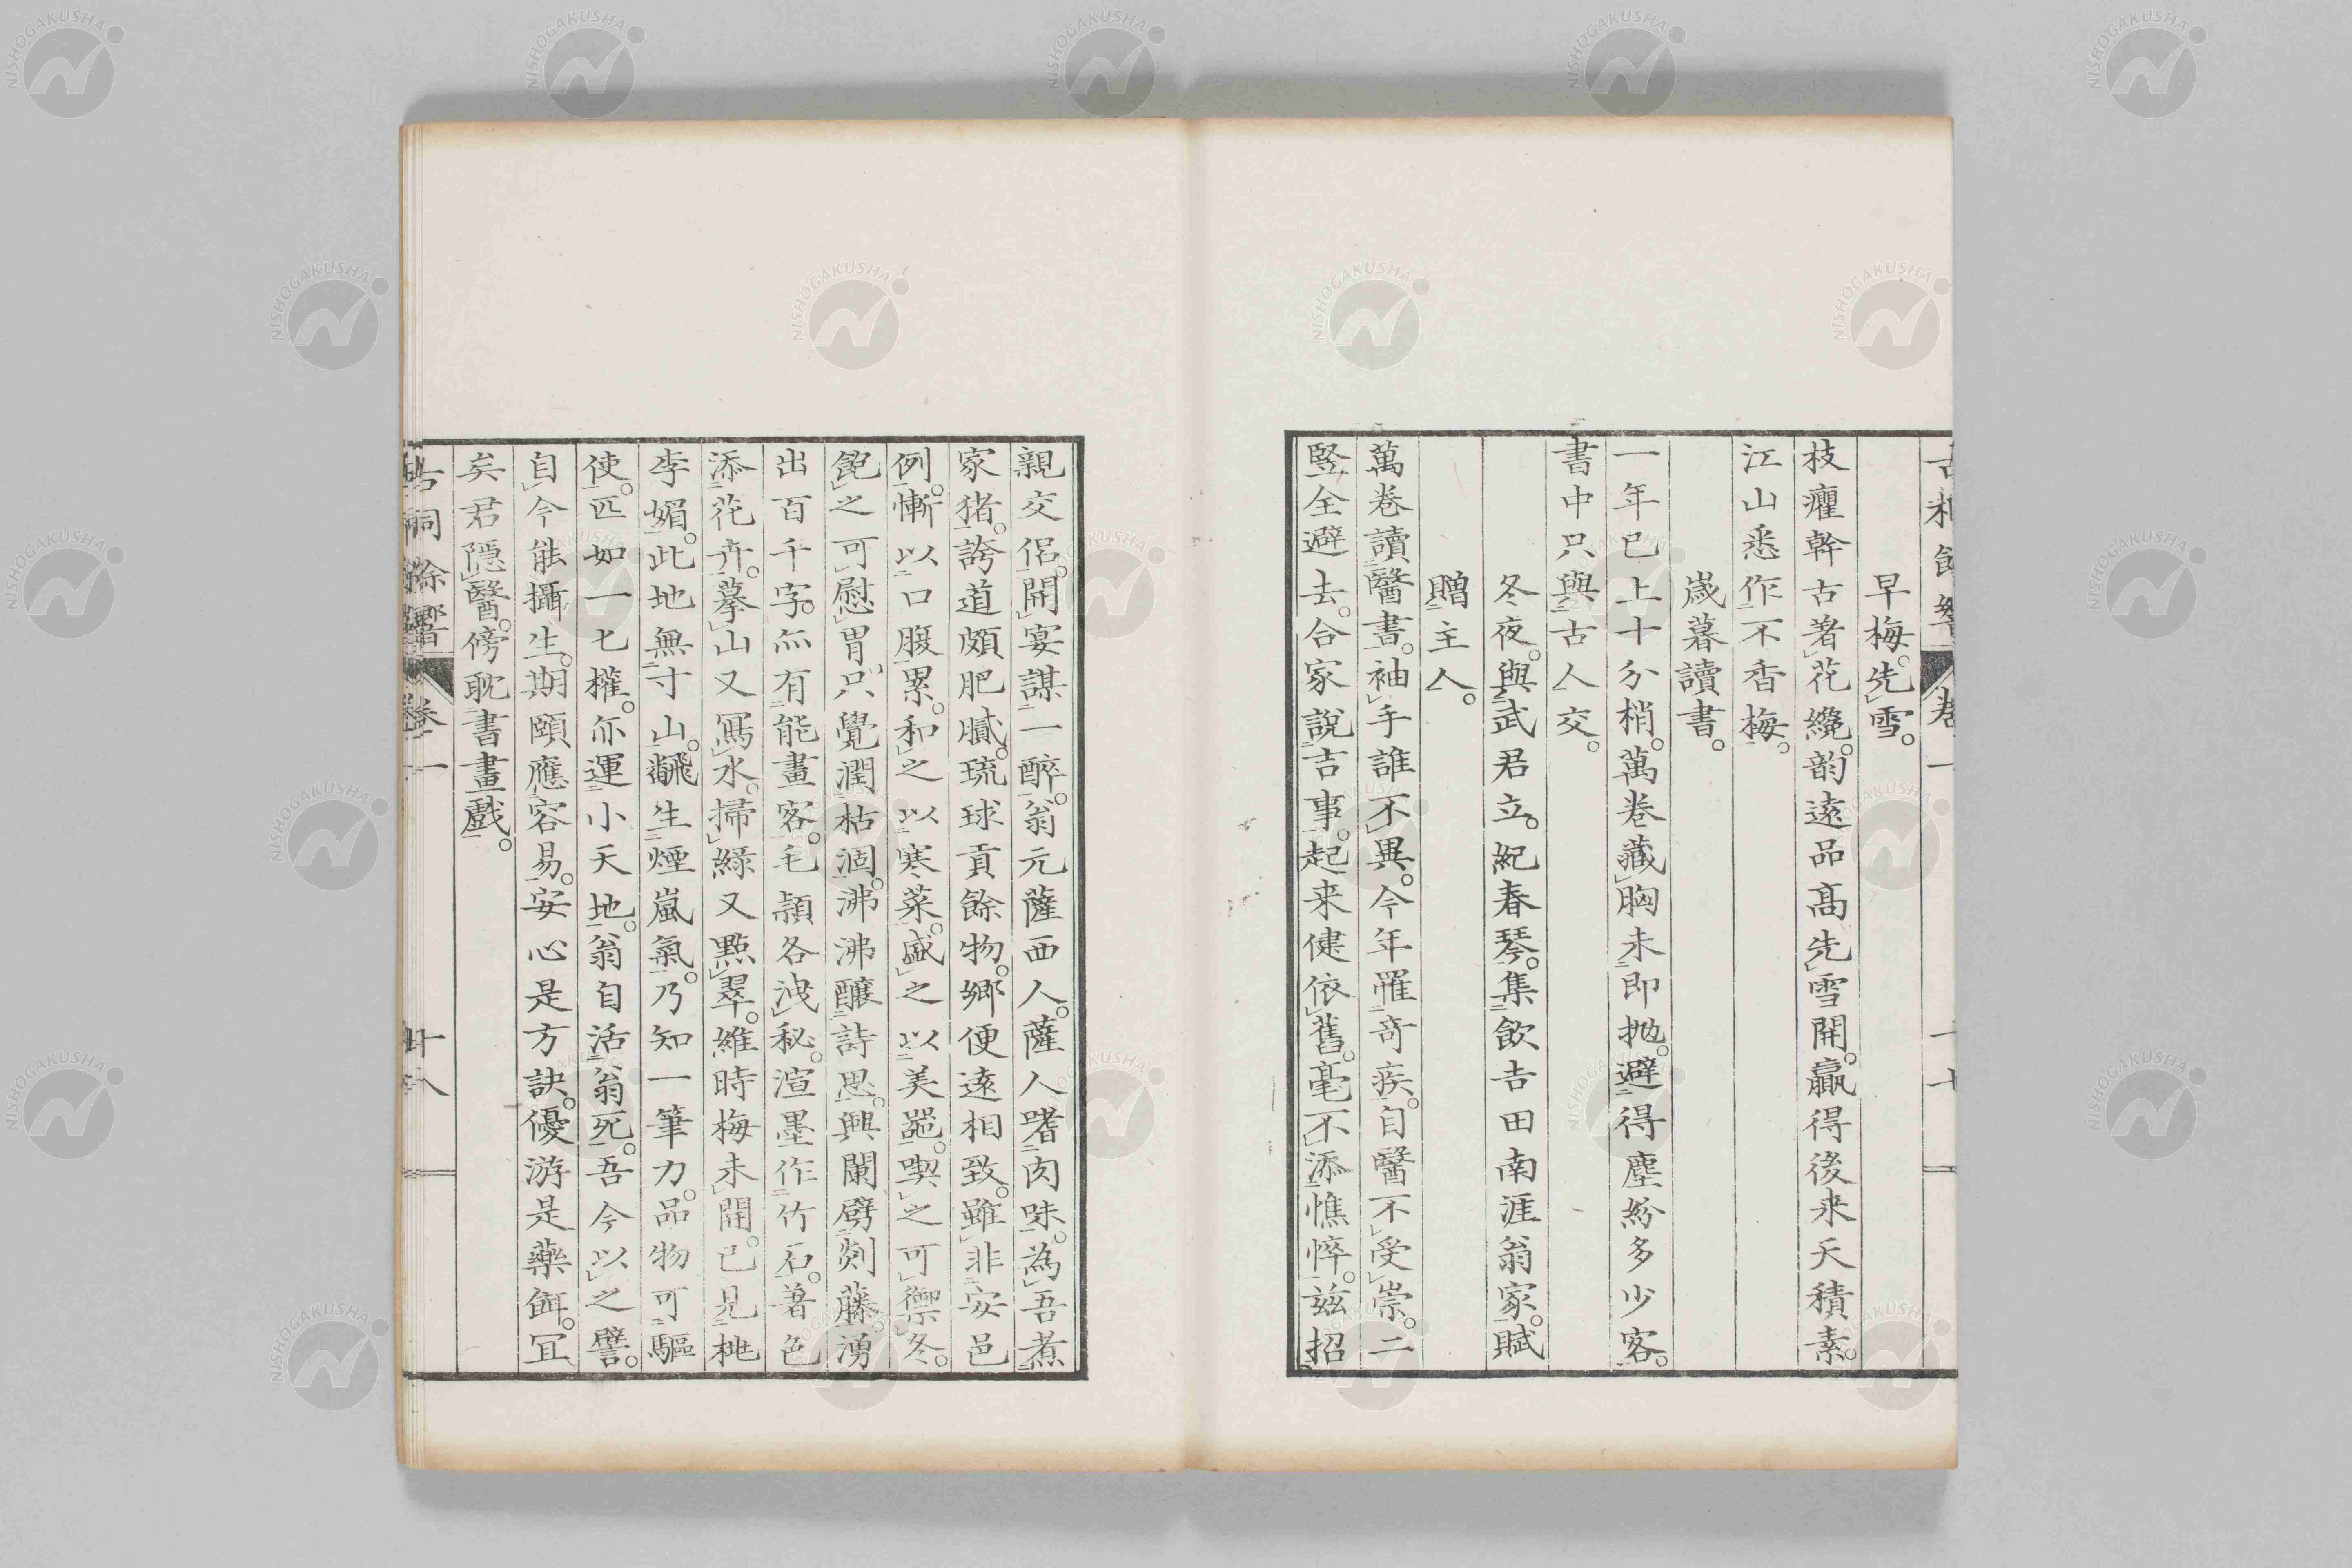 早梅。先雪。
枝癯幹古著花纔。韵遠品高先雪開。贏得後来天積素。
江山悉作不香梅。
歳暮讀書。
一年已上十分梢。萬卷藏胸未即抛。避得塵紛多少客。
書中只與古人交。
冬夜。與武君立。紀春琴。集飲吉田南涯翁家。賦
贈主人。
萬卷讀醫書。袖手誰不異。今年罹奇疾。自醫不受祟。二
竪全避去。合家說吉事。起来健依舊。毫不添憔悴。玆招
親交侶。開宴謀一醉。翁元薩西人。薩人嗜肉味。為吾煮
家猪。誇道頗肥膩。琉球貢餘物。郷便遠相致。雖非安邑
例。慚以口腹累。和之以寒菜。盛之以美器。喫之可禦冬。
飽之可慰胃。只覺潤枯涸。沸沸釀詩思。興闌劈剡藤。湧
出百千字。亦有能畫客。毛頴各洩秘。渲墨作竹石。著色
添花卉。摹山又寫水。掃緑又點翠。維時梅未開。已見桃
李媚。此地無寸山。飜生煙嵐氣。乃知一筆力。品物可驅
使。匹如一七權。亦運小天地。翁自活翁死。吾今以之譬。
自今能攝生。期頤應容易。安心是方訣。優游是藥餌。冝
矣君隱醫。傍耽書畫戲。
卷一
十七
卷一
十八
NISHOGAKUSHA